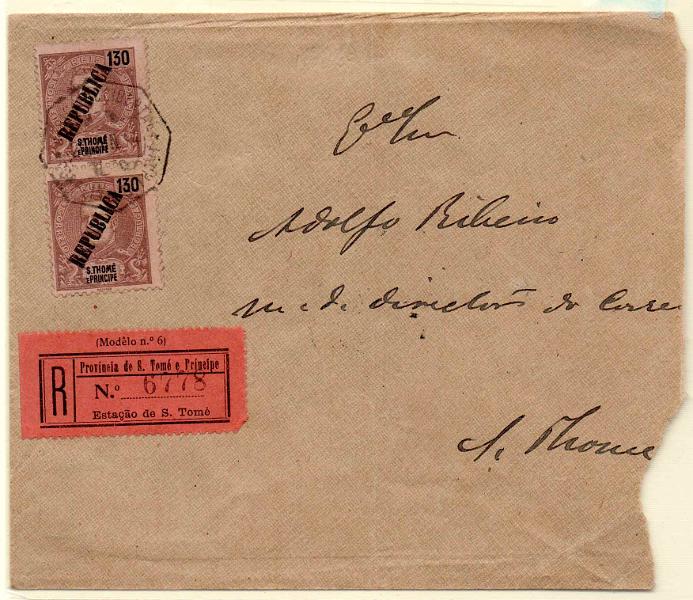 130
REPUBLICA
S. THOMÉ
E PRINCIPE
130
REPUBLICA
S. THOMÉ
E PRINCIPE
Exmo Snr
Adolfo Ribeiro
m. d. director do Corre
S. Thome
(Modêlo n.º 6)
Provincia de S. Tomé e Príncipe
R N.º 6778
Estação de S. Tomé